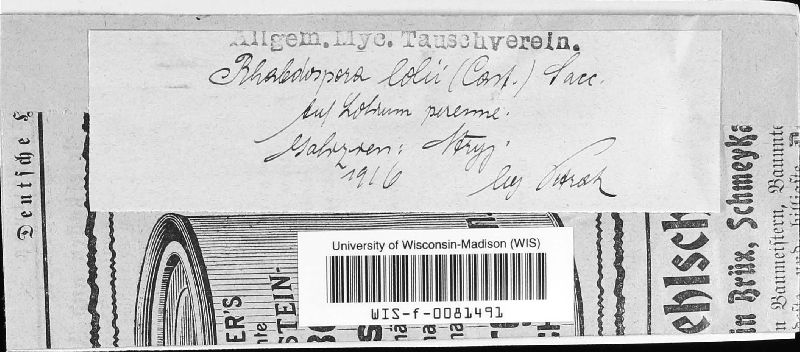 Allgem. Myc. Tauschverein.
Rhabdospora lolii (Cast.) Sacc.
Auf Lolium perenne.
Galizien: Stryj.
1916 leg Petrak
Deutsche
University of Wisconsin-Madison (WIS)
WIS-f-0081491
ER'S
STEIN-
ehlsch
in Brüx, Schmeyka
n Baumeistern, Baumte